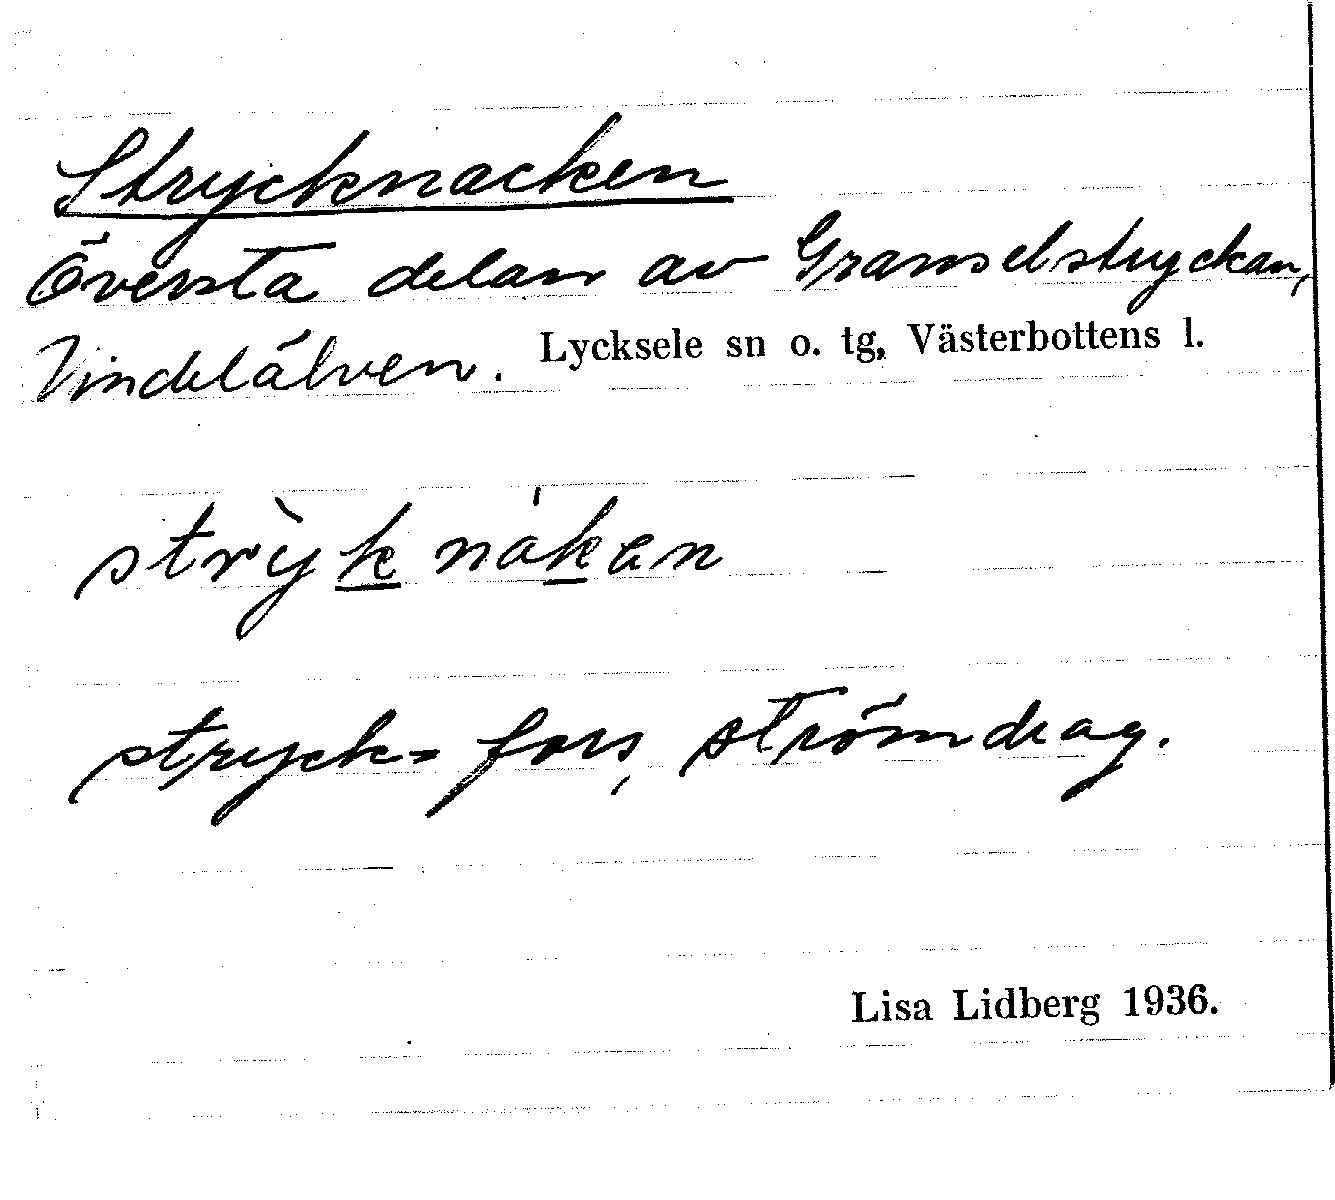 Strycknacken
Översta delen av Gramselstryckan,
Vindelälven. Lycksele sn o. tg, Västerbottens l.
strỳk nákan
stryck = fors, strömdrag.
Lisa Lidberg 1936.